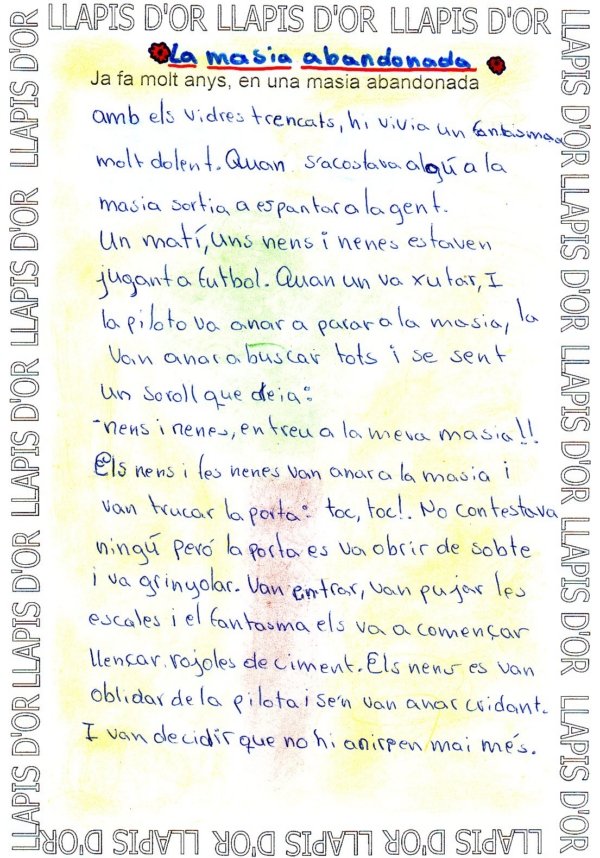 LLAPIS D'OR LLAPIS D'OR LLAPIS D'OR
La masia abandonada
Ja fa molt anys, en una masia abandonada
amb els vidres trencats, hi vivia un fantasma
molt dolent. Quan s'acostava algú a la
masia sortia a espantar a la gent.
Un matí, uns nens i nenes estaven
jugant a futbol. Quan un va xutar, I
la piloto va anar a parar a la masia, la
van anar a buscar tots i se sent
un soroll que deia:
-nens i nenes, entreu a la meva masia!!
Els nens i les nenes van anar a la masia i
van trucar la porta: toc, toc!. No contestava
ningú peró la porta es va obrir de sobte
i va grinyolar. Van entrar, van pujar les
escales i el fantasma els va a començar
llençar rajoles de ciment. Els nens es van
oblidar de la pilota i se'n van anar cridant.
I van decidir que no hi anirien mai més.
LLAPIS D'OR LLAPIS D'OR LLAPIS D'OR LLAPIS D'OR LLAPIS D'OR
LLAPIS D'OR LLAPIS D'OR LLAPIS D'OR LLAPIS D'OR LLAPIS D'OR
LLAPIS D'OR LLAPIS D'OR LLAPIS D'OR